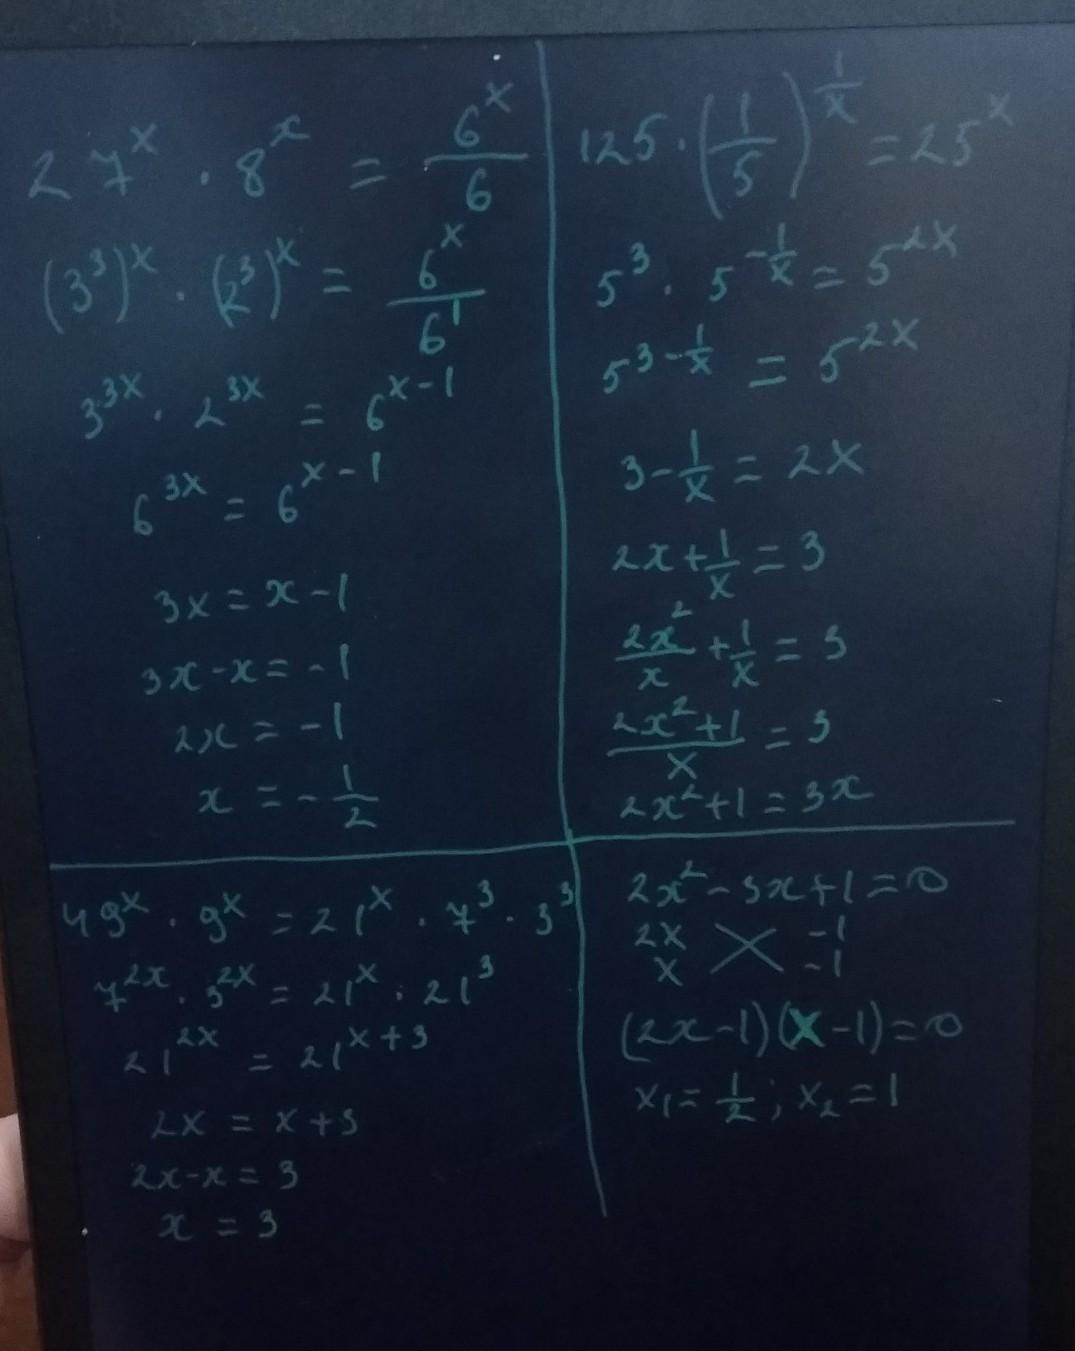 27^x · 8^x = 6^x/6
(3^3)^x · (2^3)^x = 6^x/6^1
3^3x · 2^3x = 6^x-1
6^3x = 6^x-1
3x = x - 1
3x - x = -1
2x = -1
x = -1/2
125 · (1/5)^1/x = 25^x
5^3 · 5^-1/x = 5^2x
5^3-1/x = 5^2x
3 - 1/x = 2x
2x + 1/x = 3
2x^2/x + 1/x = 3
2x^2+1/x = 3
2x^2+1 = 3x
49^x · 9^x = 21^x · 7^3 · 3^3
7^2x · 3^2x = 21^x · 21^3
21^2x = 21^x+3
2x = x + 3
2x - x = 3
x = 3
2x^2 - 3x + 1 = 0
2x -1
x -1
(2x-1)(x-1) = 0
x1 = 1/2 ; x2 = 1